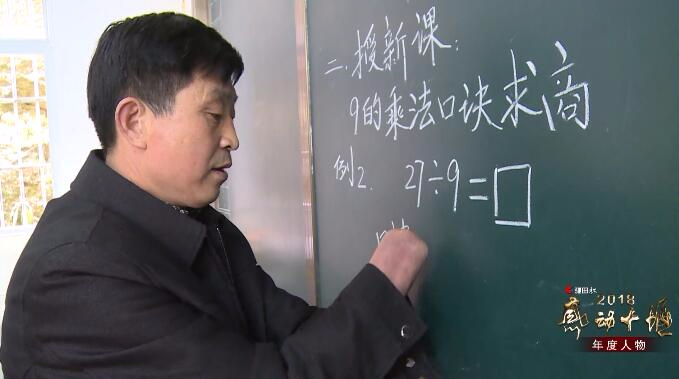 二.授新课:
9的乘法口诀求商
例2. 27÷9=□
2018
感动十堰
年度人物